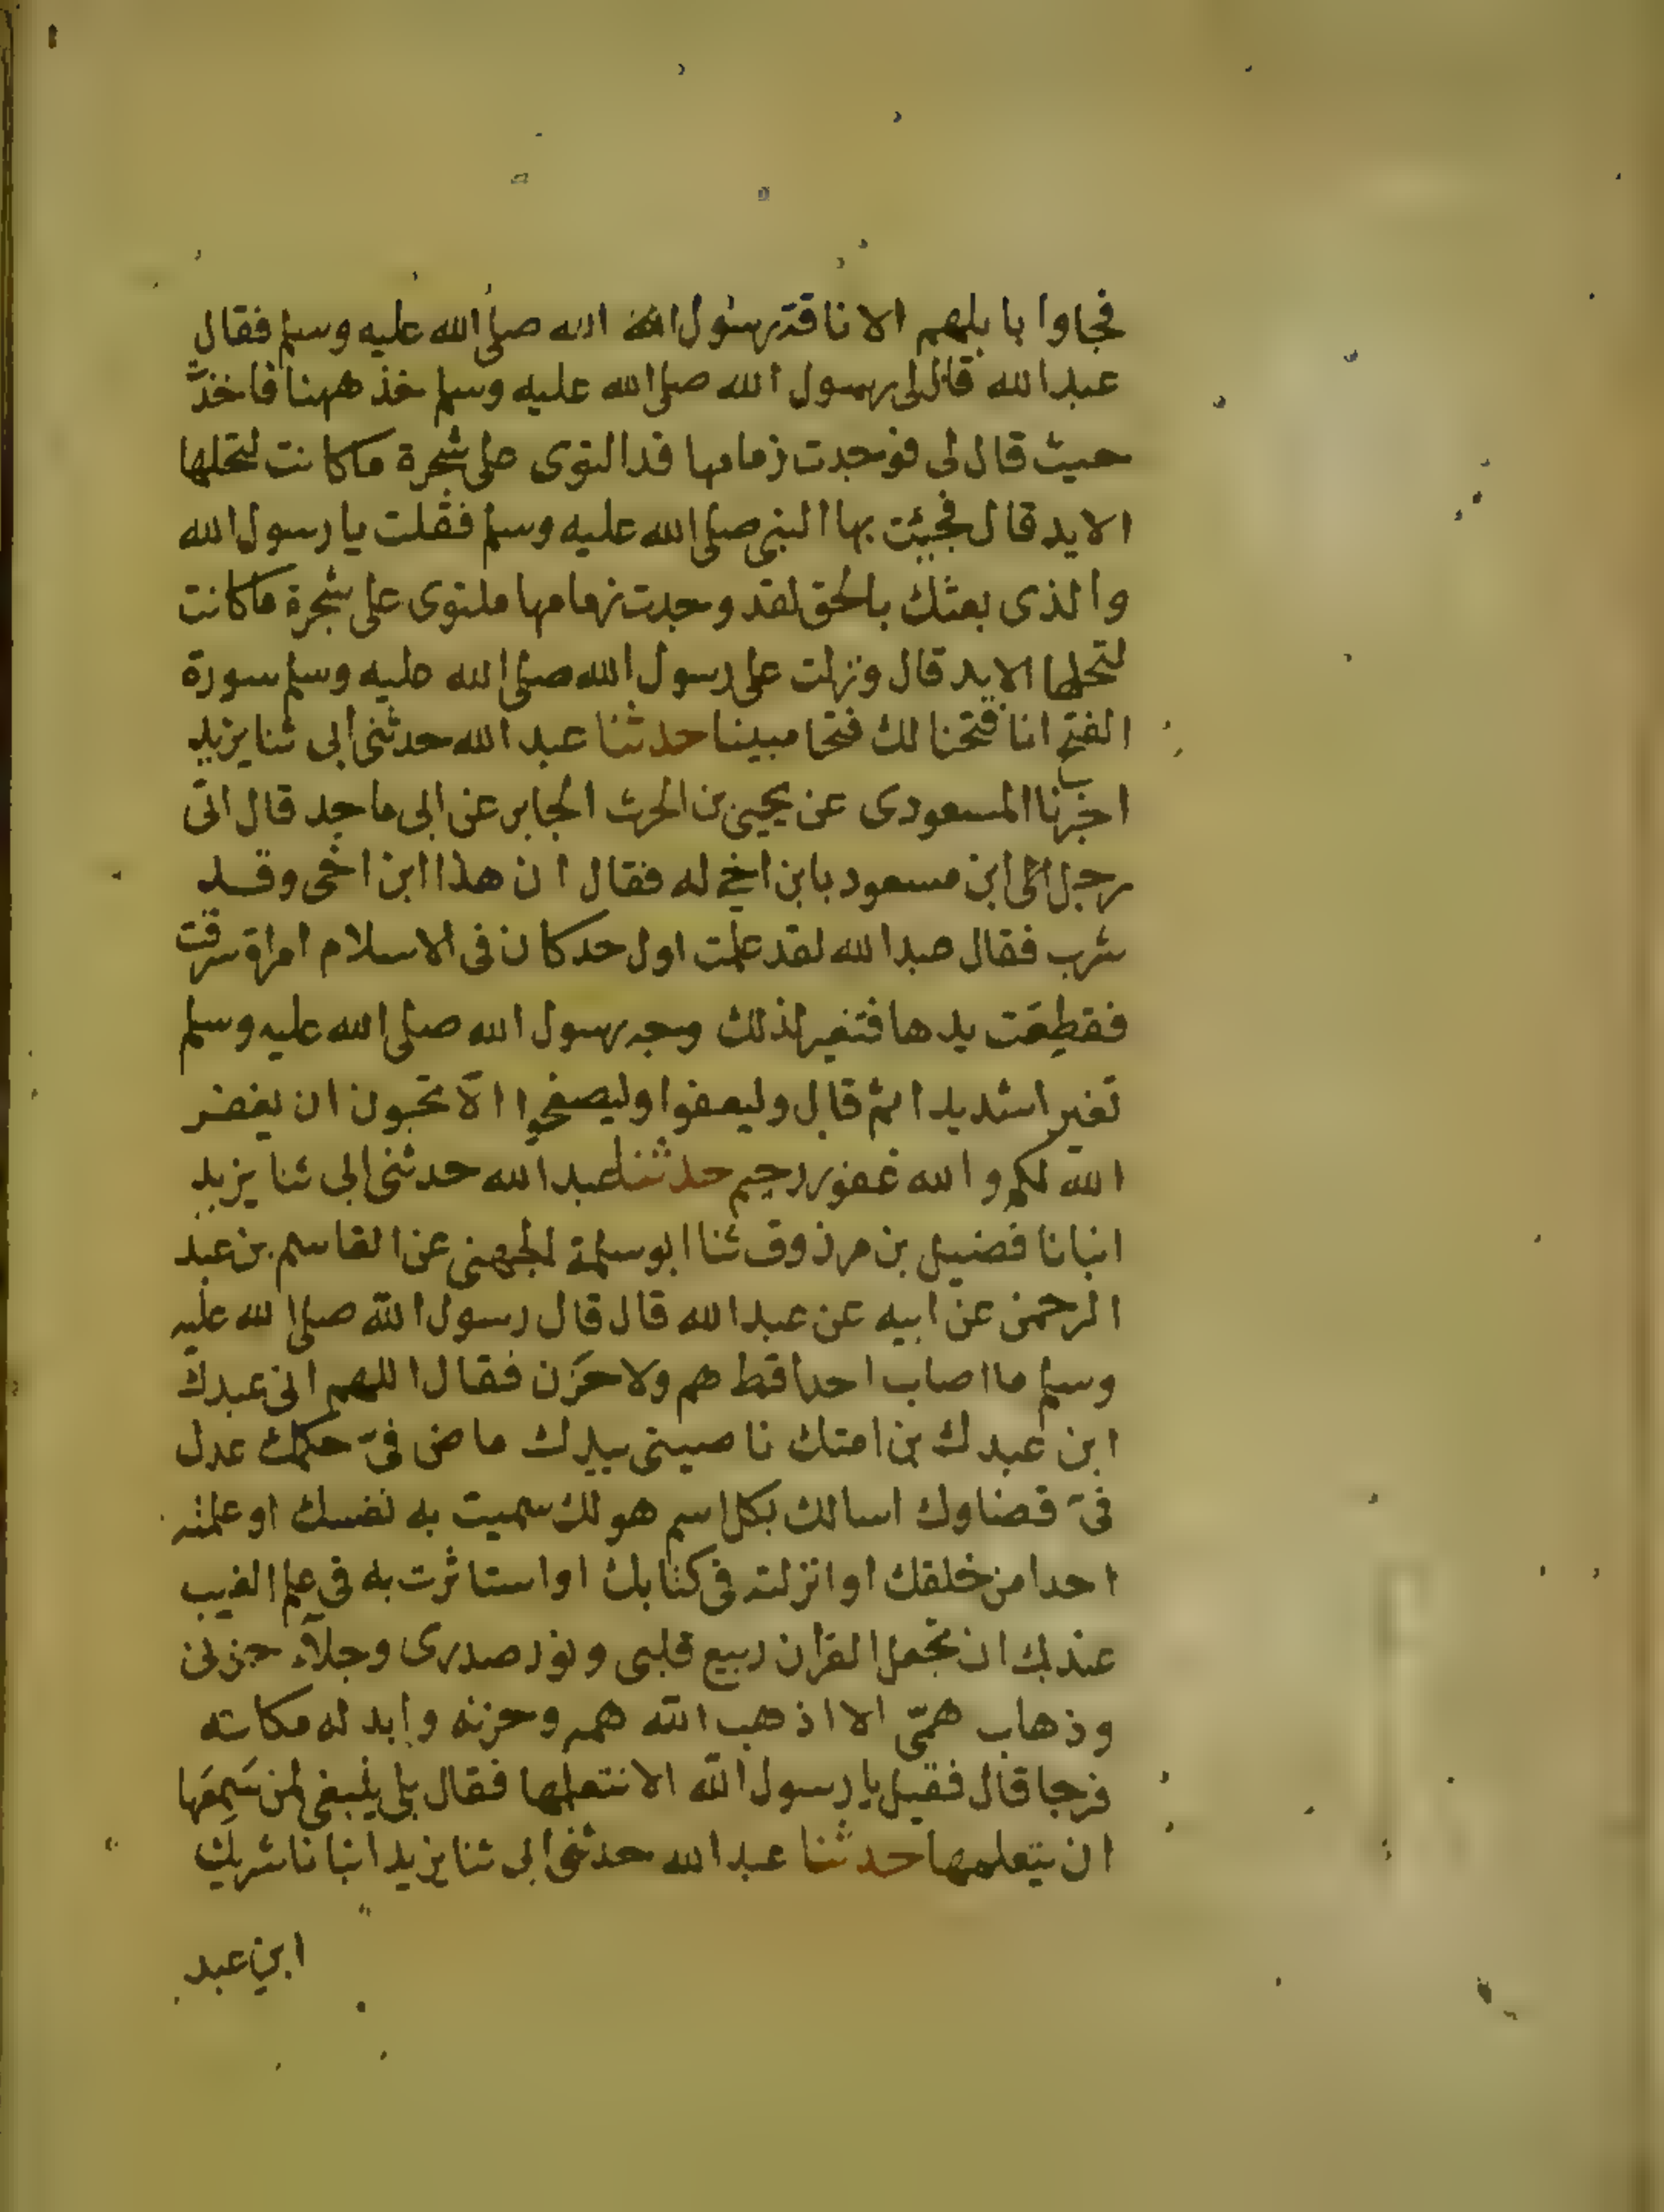 فجاوا بابلهم الا ناقة رسول الله صلى الله عليه وسلم فقال
عبد الله قال لى رسول الله صلى الله عليه وسلم خذ ههنا فاخذت
حيث قال لى فوجدت زمامها قد التوى على شجرة ما كانت لتحلها
الا يد قال فجيئت بها النبى صلى الله عليه وسلم فقلت يا رسول الله
والذى بعثك بالحق لقد وجدت زمامها ملتوى على شجرة ما كانت
لتحلها الا يد قال ونزلت على رسول الله صلى الله عليه وسلم سورة
الفتح انا فتحنا لك فتحا مبينا حدثنا عبد الله حدثنى ابى ثنا يزيد
اخبرنا المسعودى عن يحيى بن الحرث الجابر عن ابى ماجد قال اتى
رجل الى ابن مسعود بابن اخ له فقال ان هذا ابن اخى وقد
شرب فقال عبد الله لقد علمت اول حد كان فى الاسلام امراة سرقت
فقطِعَت يدها فتغير لذلك وجه رسول الله صلى الله عليه وسلم
تغيرا شديدا ثم قال وليعفوا وليصفحوا الا تحبون ان يغفر
الله لكم والله غفور رحيم حدثنا عبد الله حدثنى ابى ثنا يزيد
انبانا فضيل بن مرذوق ثنا ابو سلمة الجهنى عن القاسم بن عبد
الرحمن عن ابيه عن عبد الله قال قال رسول الله صلى الله عليه
وسلم ما اصاب احدا قط هم ولا حَزَن فقال اللهم انى عبدك
ابن عبدك بن امتك ناصيتى بيدك ماض فىّ حكمك عدل
فىّ قضاوك اسالك بكل اسم هو لك سميت به نفسك او علمته
احدا من خلقك او انزلته فى كتابك او استاثرت به فى علم الغيب
عندك ان تجعل القران ربيع قلبى ونور صدرى وجلآء حزنى
وذهاب همّى الا اذهب الله همه وحزنه وابدله مكانه
فرجا قال فقيل يا رسول الله الا نتعلمها فقال بلى ينبغى لمن سَمِعَها
ان يتعلمها حدثنا عبد الله حدثنى ابى ثنا يزيد انبانا شريك
ابن عبد